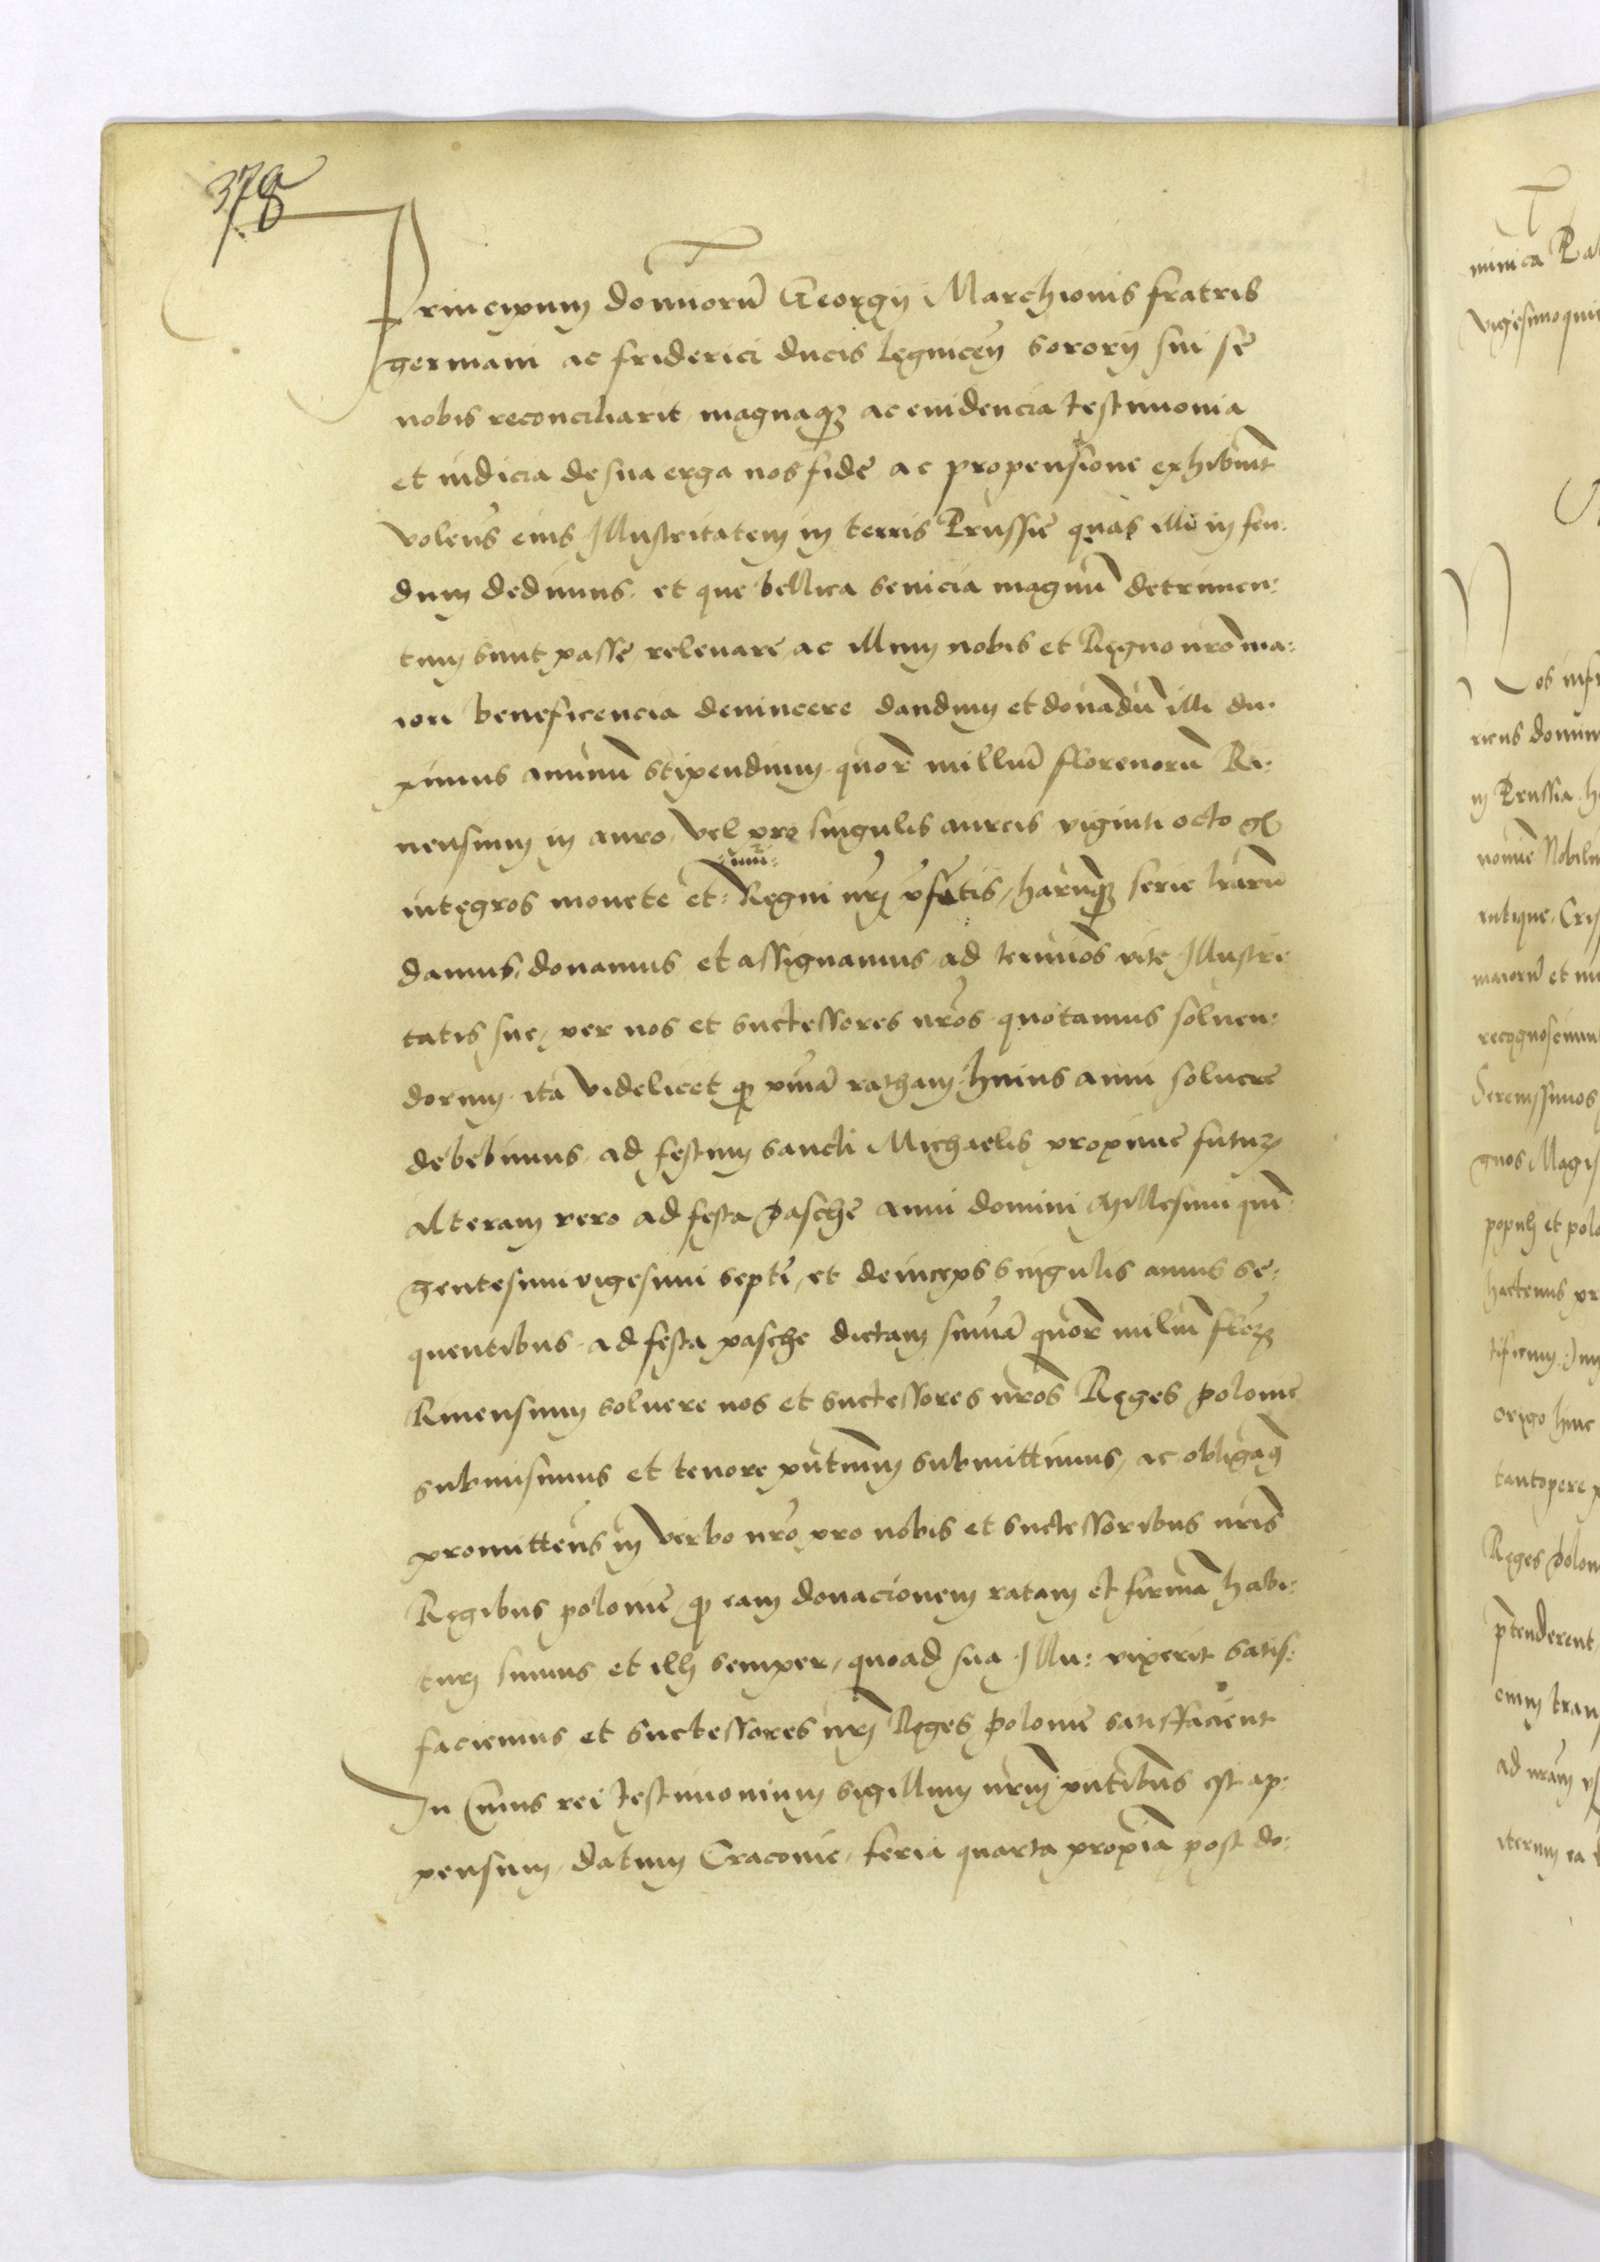 378
Principum domiorũ Georgij Marchionis fratris
germani ac friderici ducis Legniceñ sororij sui se
nobis reconciliarit magnaqꝫ ac euidencia testimonia
et indicia de sua erga nos fide ac propensione exhibuit
volens eius Illustritatem in terris Prussie quas illi in feu:
dum dedimus. et que bellica seuicia magnũ detrimen:
tum sunt passe, releuare, ac illum nobis et Regno nr̃o ma:
iori beneficencia deuincere dandum et donãdũ illi du:
ximus annuũ stipendium quor̃ milliũ florenorũ Ri:
nensium in auro, vel pro singulis aureis viginti octo gͦ
integros monete et: nũi: Regni nr̃j vsatis, harũqꝫ serie lr̃arũ
damus, donamus et assignamus ad terminos vite Illustri
tatis sue, per nos et successores nr̃os quotannis soluen:
dorum. ita videlicet qꝫ vnã ratham huius anni soluere
debebimus ad festum sancti Michaelis proxime futurꝫ
alteram vero ad festa Pasche anni domini Millesimi quĩ
gentesimi vigesimi septĩ, et deinceps singulis annis se:
quentibus ad festa pasche dictam sum̃ã quor̃ miliũ flor̃ꝫ
Rinensium soluere nos et successores nr̃os Reges polonie
submisimus et tenore pñtium submittimus, ac obligaqꝫ
promittens in Verbo nr̃o pro nobis et successoribus nr̃is
Regibus polonie qꝫ eam donacionem ratam et firmã habi:
turj sumus et illj semper, quoad sua Illu: vixerit satis:
faciemus et successores nr̃j Reges polonie satisfacient
In Cuius rei testimonium sigillum nr̃m pñtibus est ap:
pensum, datum Cracouie, feria quarta proxiã post do:
minica
vigesimoqui
Nos infr
ricus domin
in Prussia h
maiorũ et
recognoscimus
Serenissimos
populj et polo
hactenus
origo hinc
tantopere
Reges Polon
p̃tenderent,
ad nr̃am
iterum ea